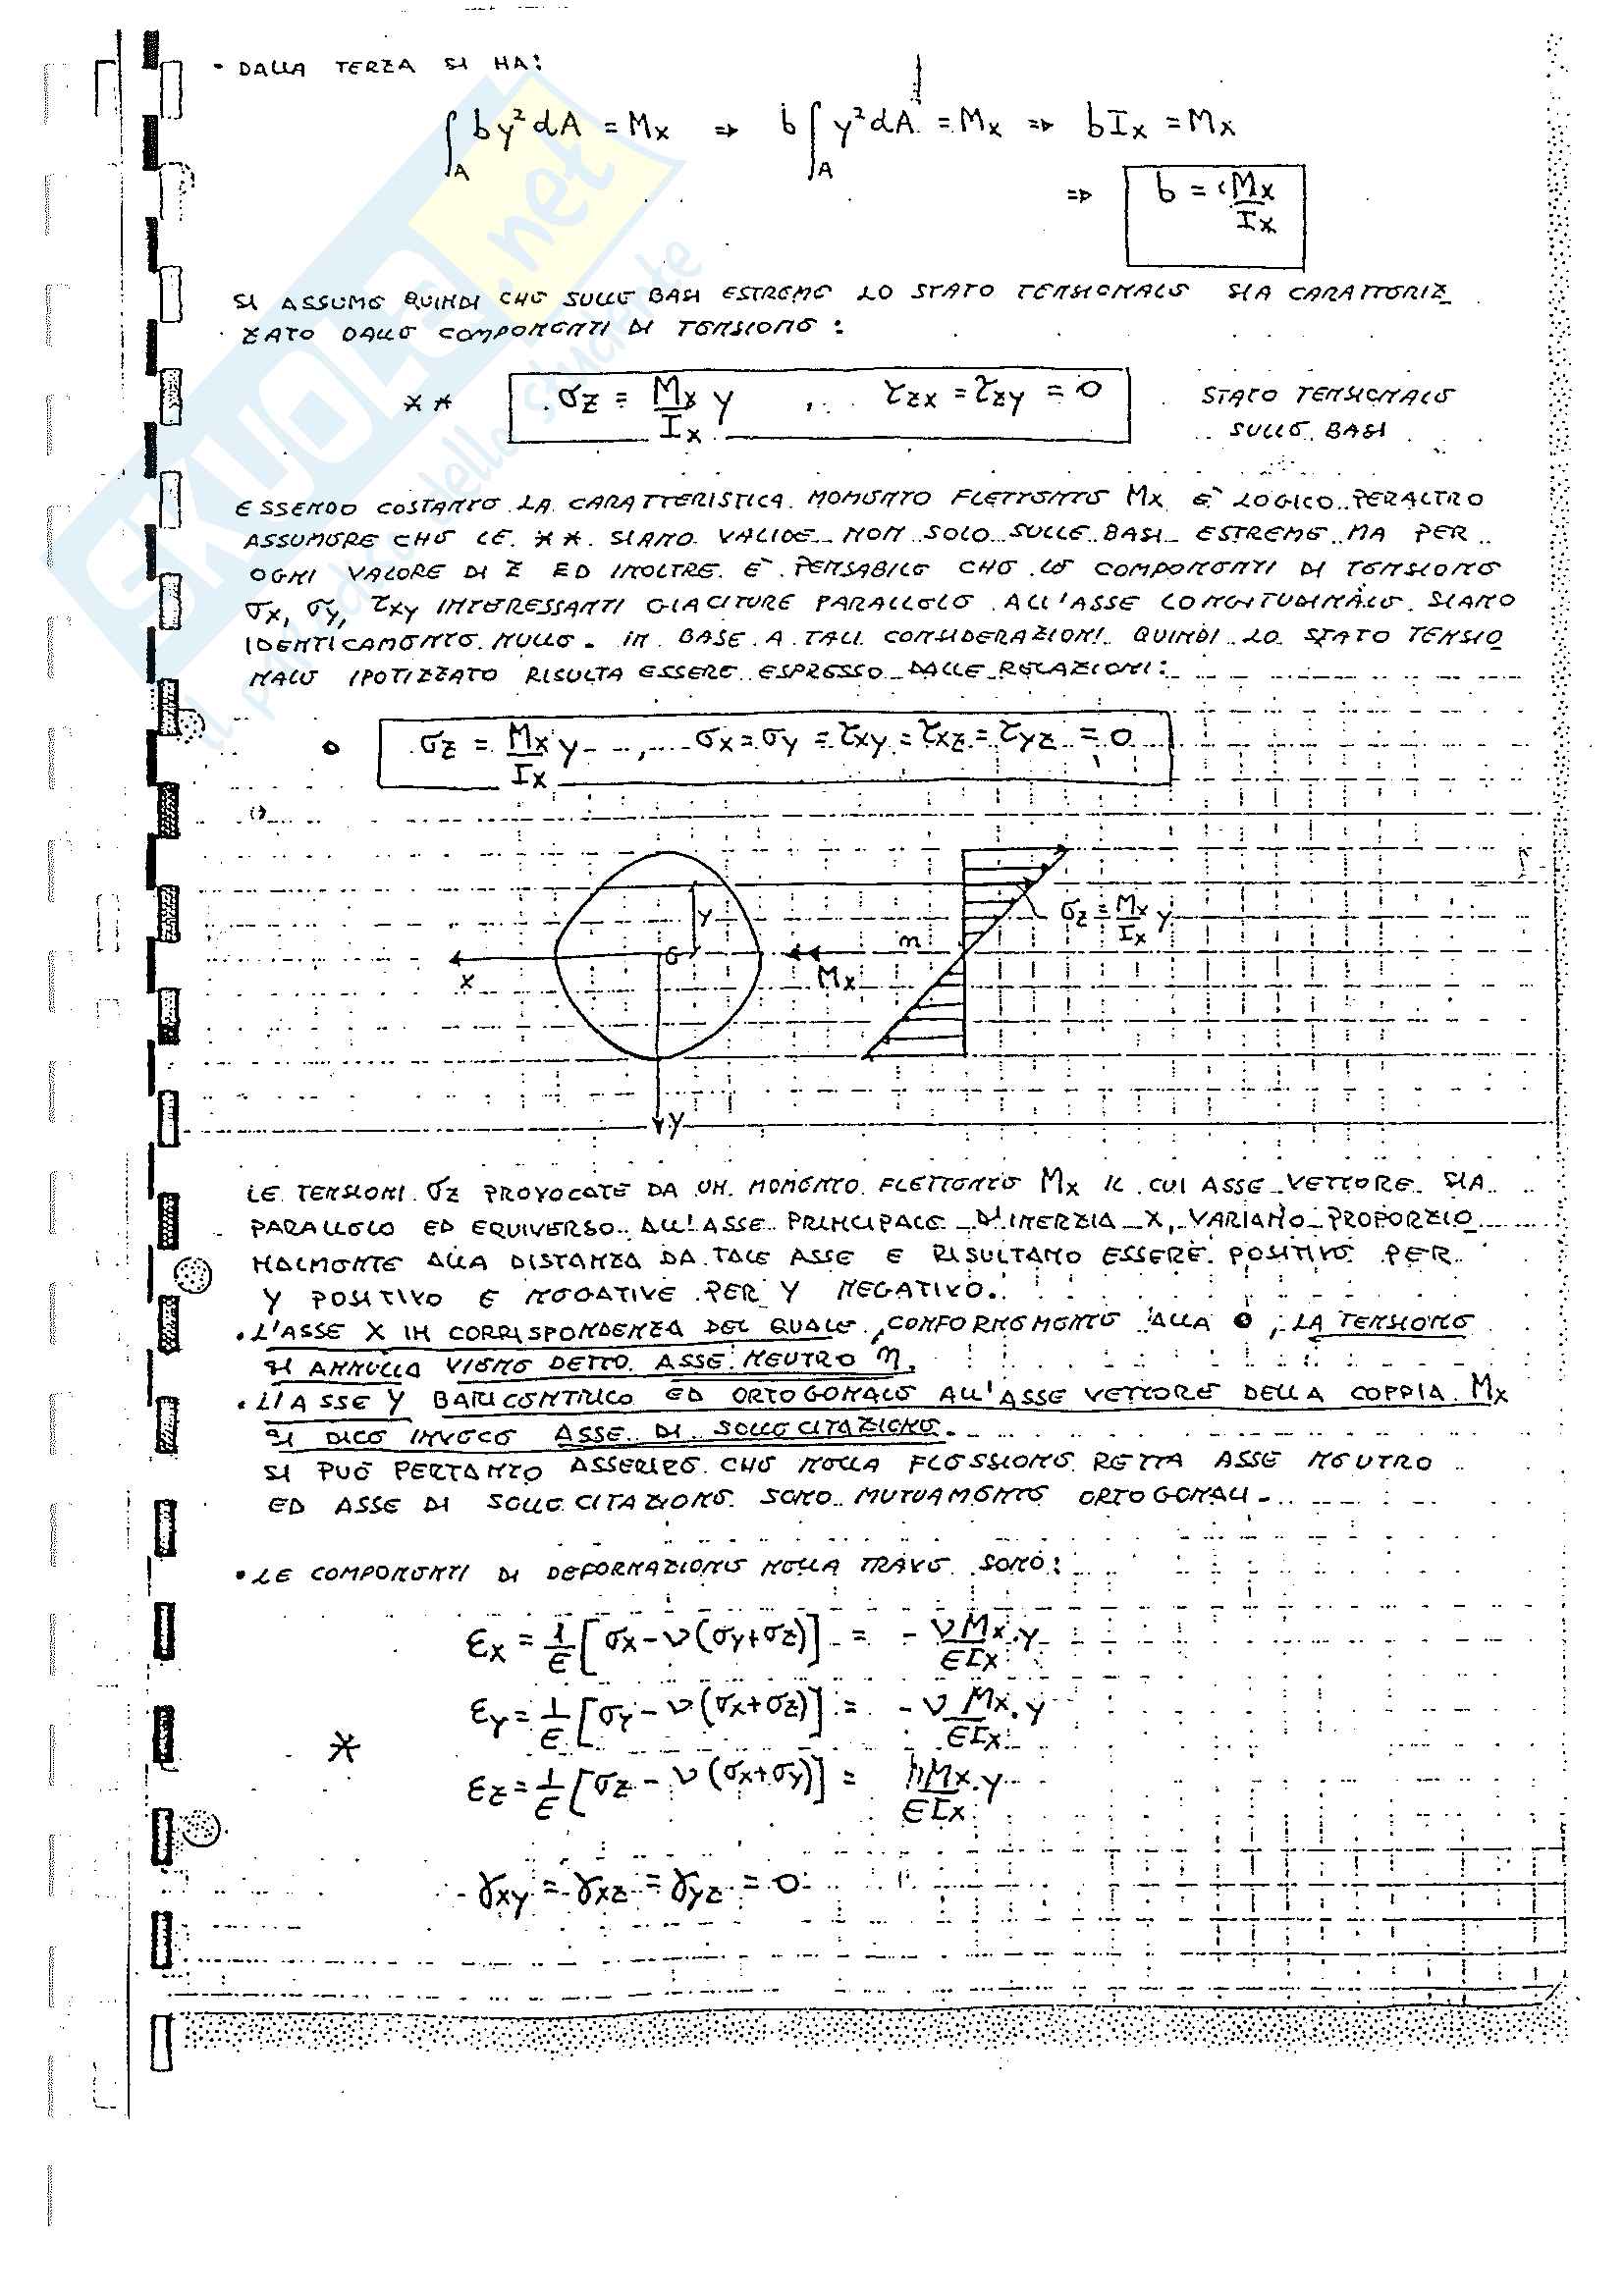 • DALLA TERZA SI HA:
∫_A b y² dA = Mx ⇒ b ∫_A y² dA = Mx ⇒ b Ix = Mx
⇒ b = Mx/Ix
SI ASSUME QUINDI CHE SULLE BASI ESTREME LO STATO TENSIONALE SIA CARATTERIZ
ZATO DALLE COMPONENTI DI TENSIONE:
** σz = Mx/Ix y , τzx = τzy = 0 STATO TENSIONALE
SULLE BASI
ESSENDO COSTANTE LA CARATTERISTICA MOMENTO FLETTENTE Mx E' LOGICO PERALTRO
ASSUMERE CHE LE ** SIANO VALIDE NON SOLO SULLE BASI ESTREME MA PER
OGNI VALORE DI Z ED INOLTRE E' PENSABILE CHE LE COMPONENTI DI TENSIONE
σx, σy, τxy INTERESSANTI GIACITURE PARALLELE ALL'ASSE LONGITUDINALE SIANO
IDENTICAMENTE NULLE. IN BASE A TALI CONSIDERAZIONI QUINDI LO STATO TENSIO
NALE IPOTIZZATO RISULTA ESSERE ESPRESSO DALLE RELAZIONI:
o σz = Mx/Ix y , σx = σy = τxy = τxz = τyz = 0
y
σz = Mx/Ix y
x G Mx n
y
LE TENSIONI σz PROVOCATE DA UN MOMENTO FLETTENTE Mx IL CUI ASSE VETTORE SIA
PARALLELO ED EQUIVERSO ALL'ASSE PRINCIPALE D'INERZIA X, VARIANO PROPORZIO
NALMENTE ALLA DISTANZA DA TALE ASSE E RISULTANO ESSERE POSITIVE PER
Y POSITIVO E NEGATIVE PER Y NEGATIVO.
• L'ASSE X IN CORRISPONDENZA DEL QUALE, CONFORMEMENTE ALLA o, LA TENSIONE
SI ANNULLA VIENE DETTO ASSE NEUTRO n.
• L'ASSE Y BARICENTRICO ED ORTOGONALE ALL'ASSE VETTORE DELLA COPPIA Mx
SI DICE INVECE ASSE DI SOLLECITAZIONE.
SI PUÒ PERTANTO ASSERIRE CHE NELLA FLESSIONE RETTA ASSE NEUTRO
ED ASSE DI SOLLECITAZIONE SONO MUTUAMENTE ORTOGONALI.
• LE COMPONENTI DI DEFORMAZIONE NELLA TRAVE SONO:
εx = 1/E [σx - ν(σy+σz)] = - νMx/EIx · y
εy = 1/E [σy - ν(σx+σz)] = - ν Mx/EIx · y
*
εz = 1/E [σz - ν(σx+σy)] = Mx/EIx · y
γxy = γxz = γyz = 0
SKUOLA.net